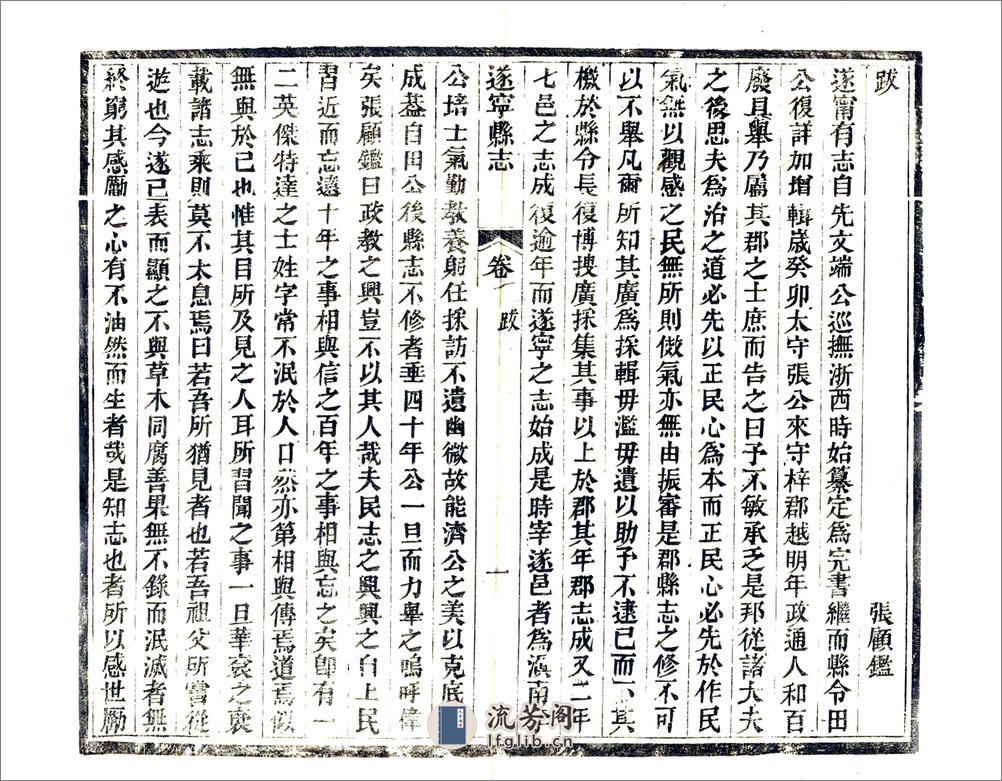 跋　張顧鑑
遂甯有志自先文端公巡撫浙西時始纂定爲完書繼而縣令田
公復詳加增輯歲癸卯太守張公來守梓郡越明年政通人和百
廢具舉乃屬其郡之士庶而告之曰予不敏承乏是邦從諸大夫
之後思夫爲治之道必先以正民心爲本而正民心必先於作民
氣無以觀感之民無所則傚氣亦無由振審是郡縣志之修不可
以不舉凡爾所知其廣爲採輯毋濫毋遺以助予不逮已而下其
檄於縣令長復博搜廣採集其事以上於郡其年郡志成又二年
七邑之志成復逾年而遂寧之志始成是時宰遂邑者爲滇南
遂寧縣志　卷　跋　一
公培士氣勤教養躬任採訪不遺幽微故能濟公之美以克底
成葢自田公後縣志不修者垂四十年公一旦而力舉之嗚呼偉
矣張顧鑑曰政教之興豈不以其人哉夫民志之興興之自上民
習近而忘遠十年之事相與信之百年之事相與忘之矣卽有一
二英傑特達之士姓字常不泯於人口然亦第相與傳焉道焉
無與於已也惟其目所及見之人耳所習聞之事一旦華袞之袞
載諸志乘則莫不太息焉曰若吾所猶見者也若吾祖父所嘗從
遊也今遂已表而顯之不與草木同腐善果無不錄而泯滅者無
終窮其感勵之心有不油然而生者哉是知志也者所以感世勵
流芳阁
lfglib.cn